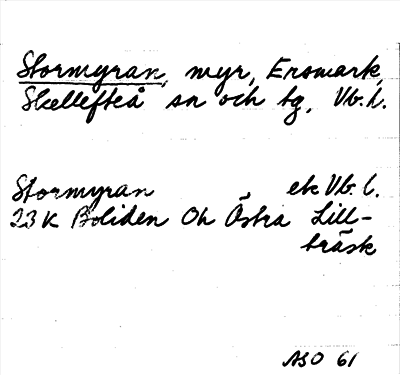 Stormyran, myr, Ersmark,
Skellefteå sn och tg, Vb.l.
Stormyran, ek Vb. l.
23 K Boliden Oh Östra Lill-
träsk
ASO 61